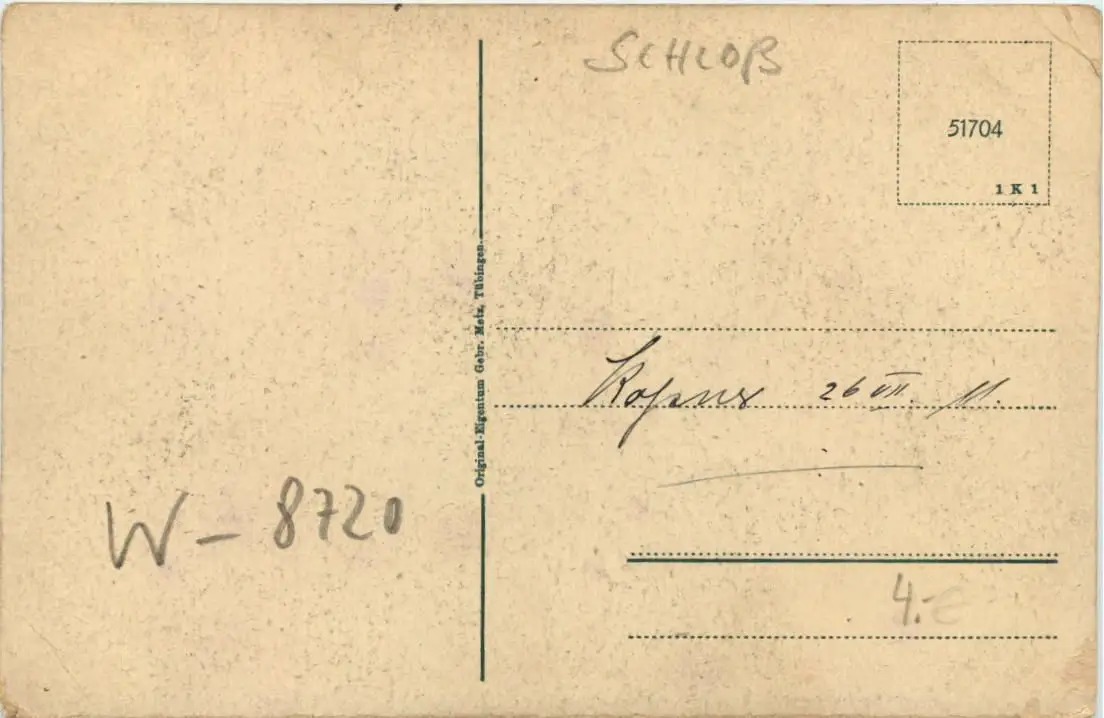 SCHLOß
51704
1 K 1
Original-Eigentum Gebr. Metz, Tübingen.
26 VII. 11.
W - 8720
4.-€